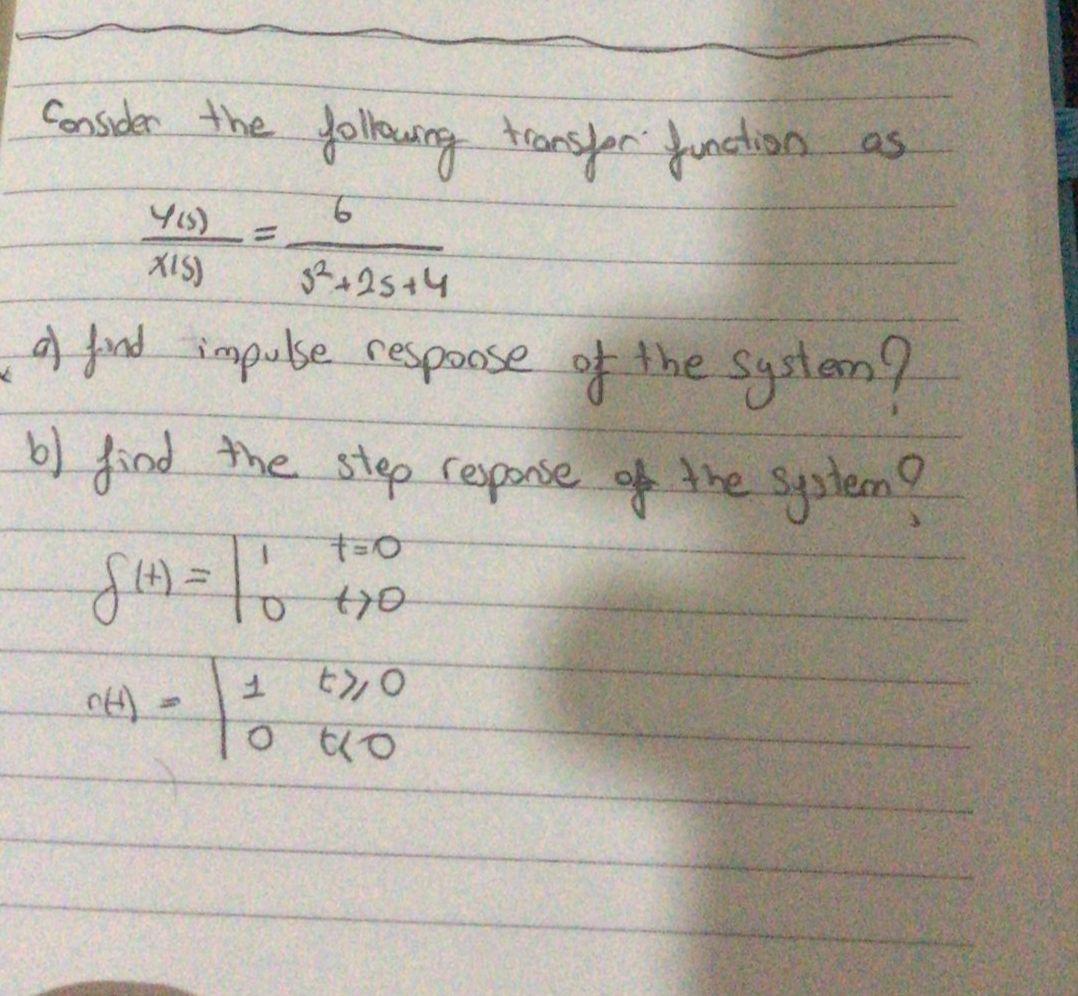 Consider the following transfer function as
Y(s) / X(s) = 6 / s²+2s+4
a) find impulse response of the system?
b) find the step response of the system?
δ(t) = | 1 t=0
0 t>0
r(t) = | 1 t≥0
0 t<0